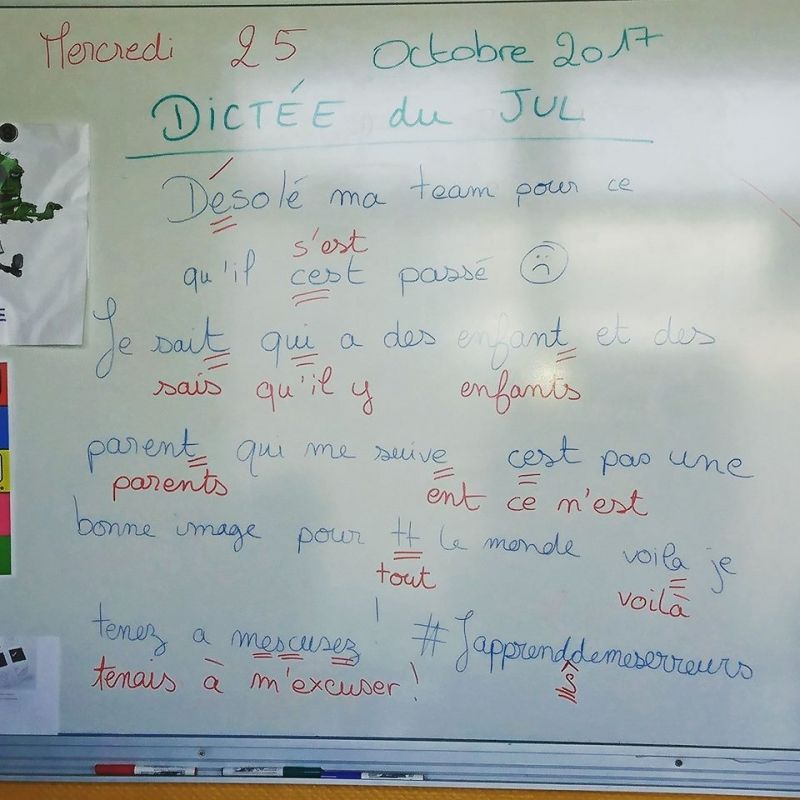 Mercredi 25 Octobre 2017
DICTÉE du JUL
Désolé ma team pour ce
s'est
qu'il cest passé
Je sait qui a des enfant et des
sais qu'il y enfants
parent qui me suive cest pas une
parents ent ce n'est
bonne image pour tt le monde voila je
tout voilà
tenez a mescusez ! #Japprenddemeserreurs
tenais à m'excuser !